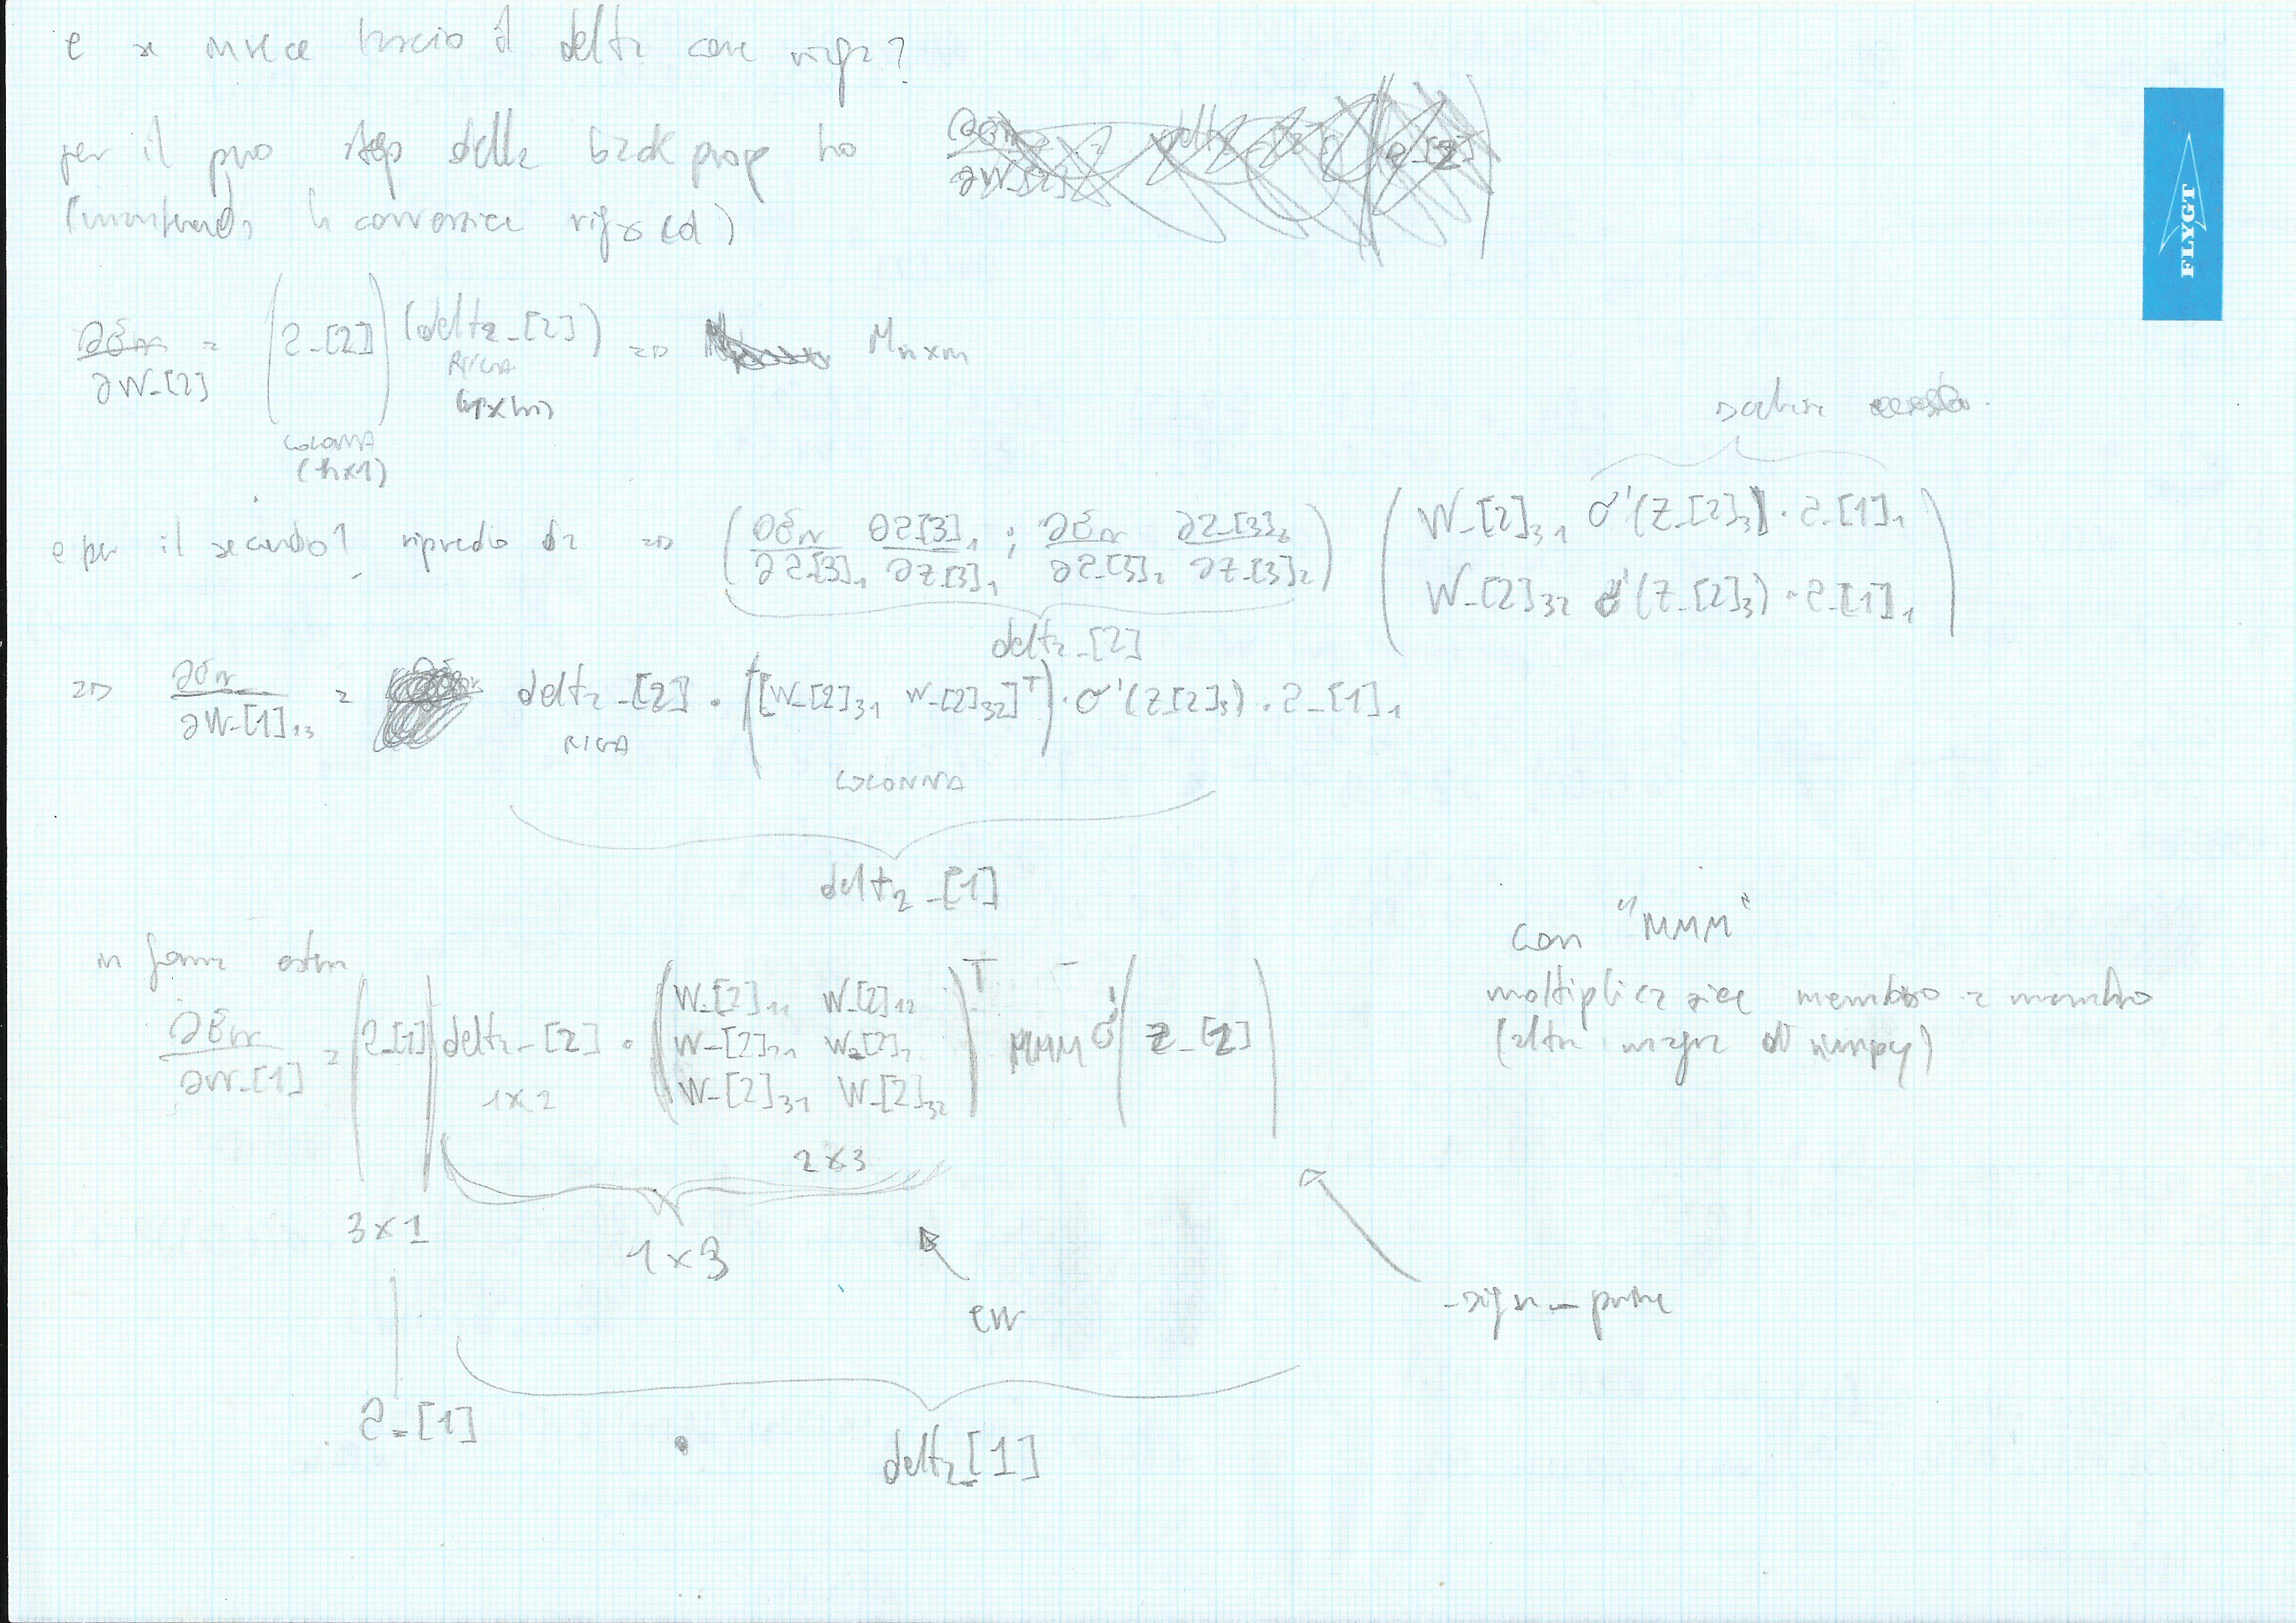 e se invece lascio il delta come riga?
per il primo step della backprop ho
(mantenendo la convenzione riga col)
∂Err/∂W_[2] = (a_[2]) (delta_[2]) => M n×m
RIGA
COLONNA
(n×1)
scalare
e per il secondo? riprendo da => (∂Err/∂a_[3]₁ ∂a_[3]₁/∂z_[3]₁ ; ∂Err/∂a_[3]₂ ∂a_[3]₂/∂z_[3]₂) (W_[2]₃₁ σ'(z_[2]₃) · a_[1]₁
W_[2]₃₂ σ'(z_[2]₃) · a_[1]₁)
delta_[2]
=> ∂Err/∂W_[1]₁₃ = delta_[2] · ([W_[2]₃₁ W_[2]₃₂]ᵀ) · σ'(z_[2]₃) · a_[1]₁
RIGA
COLONNA
delta_[1]
in forma estesa
∂Err/∂W_[1] = (a_[1]) delta_[2] · (W_[2]₁₁ W_[2]₁₂
W_[2]₂₁ W_[2]₂
W_[2]₃₁ W_[2]₃₂)ᵀ MMM σ'(z_[2])
1×2
2×3
3×1
1×3
err
_sigm_prime
a_[1] · delta_[1]
con "MMM"
moltiplicazione membro a membro
(altra magia di numpy)
FLYGT